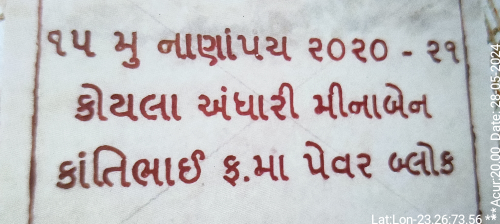 ૧૫ મુ નાણાંપચ ૨૦૨૦ - ૨૧
કોયલા અંધારી મીનાબેન
કાંતિભાઈ ફ.મા પેવર બ્લોક
Lat:Lon-23.26:73.56
***Acur:2000 Date: 28-05-2024